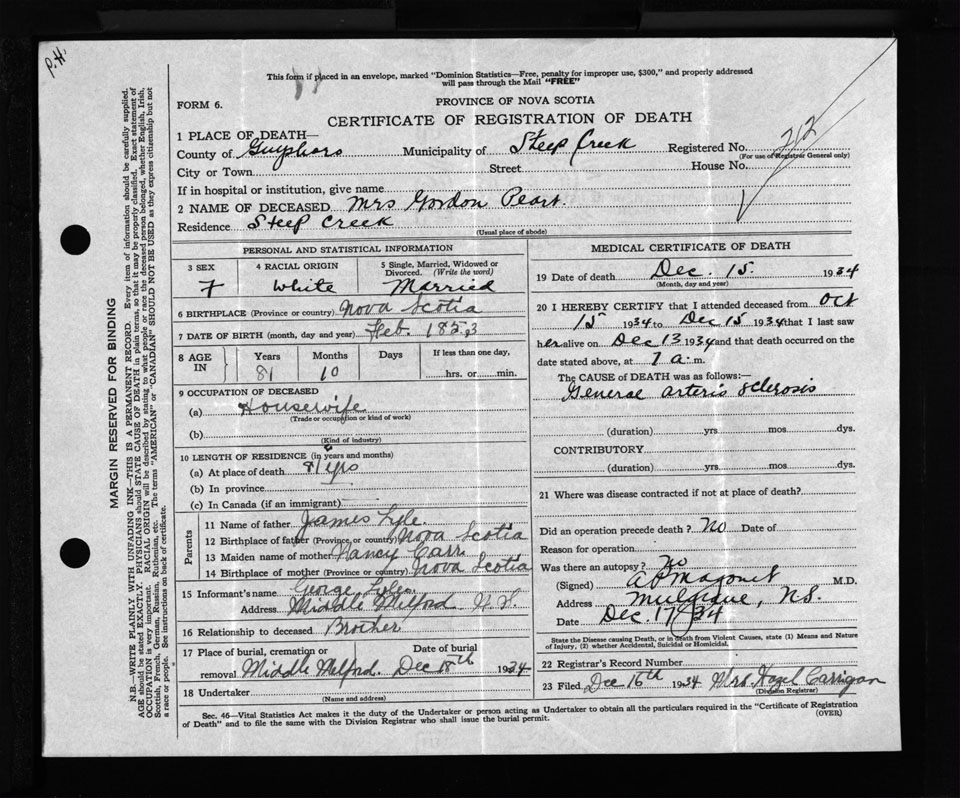 P.H.
This form if placed in an envelope, marked "Dominion Statistics—Free, penalty for improper use, $300," and properly addressed
will pass through the Mail "FREE"
FORM 6.
PROVINCE OF NOVA SCOTIA
CERTIFICATE OF REGISTRATION OF DEATH
212
1 PLACE OF DEATH—
County of Guysboro Municipality of Steep Creek Registered No.
(For use of Registrar General only)
City or Town Street House No.
If in hospital or institution, give name
2 NAME OF DECEASED Mrs Gordon Peart.
Residence Steep Creek
(Usual place of abode)
PERSONAL AND STATISTICAL INFORMATION
3 SEX 4 RACIAL ORIGIN 5 Single, Married, Widowed or
Divorced. (Write the word)
F White Married
6 BIRTHPLACE (Province or country) Nova Scotia
7 DATE OF BIRTH (month, day and year) Feb. 1853
8 AGE IN Years Months Days If less than one day,
81 10 hrs. or min.
9 OCCUPATION OF DECEASED
(a) Housewife
(Trade or occupation or kind of work)
(b)
(Kind of industry)
10 LENGTH OF RESIDENCE (in years and months)
(a) At place of death 81 yrs
(b) In province
(c) In Canada (if an immigrant)
Parents
11 Name of father James Lyle.
12 Birthplace of father (Province or country) Nova Scotia
13 Maiden name of mother Nancy Carr
14 Birthplace of mother (Province or country) Nova Scotia
15 Informant's name George Lyle
Address Middle Milford
16 Relationship to deceased Brother
17 Place of burial, cremation or Date of burial
removal Middle Melford. Dec 18th 1934
18 Undertaker
(Name and address)
MEDICAL CERTIFICATE OF DEATH
19 Date of death Dec. 15. 1934
(Month, day and year)
20 I HEREBY CERTIFY that I attended deceased from Oct
15 1934 to Dec 15 1934 that I last saw
her alive on Dec 13 1934 and that death occurred on the
date stated above, at 7 a. m.
The CAUSE OF DEATH was as follows:—
General arterio sclerosis
(duration) yrs. mos. dys.
CONTRIBUTORY
(duration) yrs. mos. dys.
21 Where was disease contracted if not at place of death?
Did an operation precede death? No Date of
Reason for operation
Was there an autopsy? No
(Signed) M.D.
Address Mulgrave, N.S.
Date Dec. 17/34
State the Disease causing Death, or in death from Violent Causes, state (1) Means and Nature
of Injury, (2) whether Accidental, Suicidal or Homicidal.
22 Registrar's Record Number
23 Filed Dec 16th 1934 Mrs. Hazel Carrigan
(Division Registrar)
Sec. 46—Vital Statistics Act makes it the duty of the Undertaker or person acting as Undertaker to obtain all the particulars required in the "Certificate of Registration
of Death" and to file the same with the Division Registrar who shall issue the burial permit.
(OVER)
MARGIN RESERVED FOR BINDING
N.B.—WRITE PLAINLY WITH UNFADING INK—THIS IS A PERMANENT RECORD. Every item of information should be carefully supplied.
AGE should be stated EXACTLY. PHYSICIANS should STATE CAUSE OF DEATH in plain terms, so that it may be properly classified. Exact statement of
OCCUPATION is very important. RACIAL ORIGIN will be described by stating to what people or race the deceased person belonged, whether English, Irish,
Scottish, French, German, Russian, Ruthenian, etc. The terms "AMERICAN" or "CANADIAN" SHOULD NOT BE USED as they express citizenship but not
a race or people. See instructions on back of certificate.